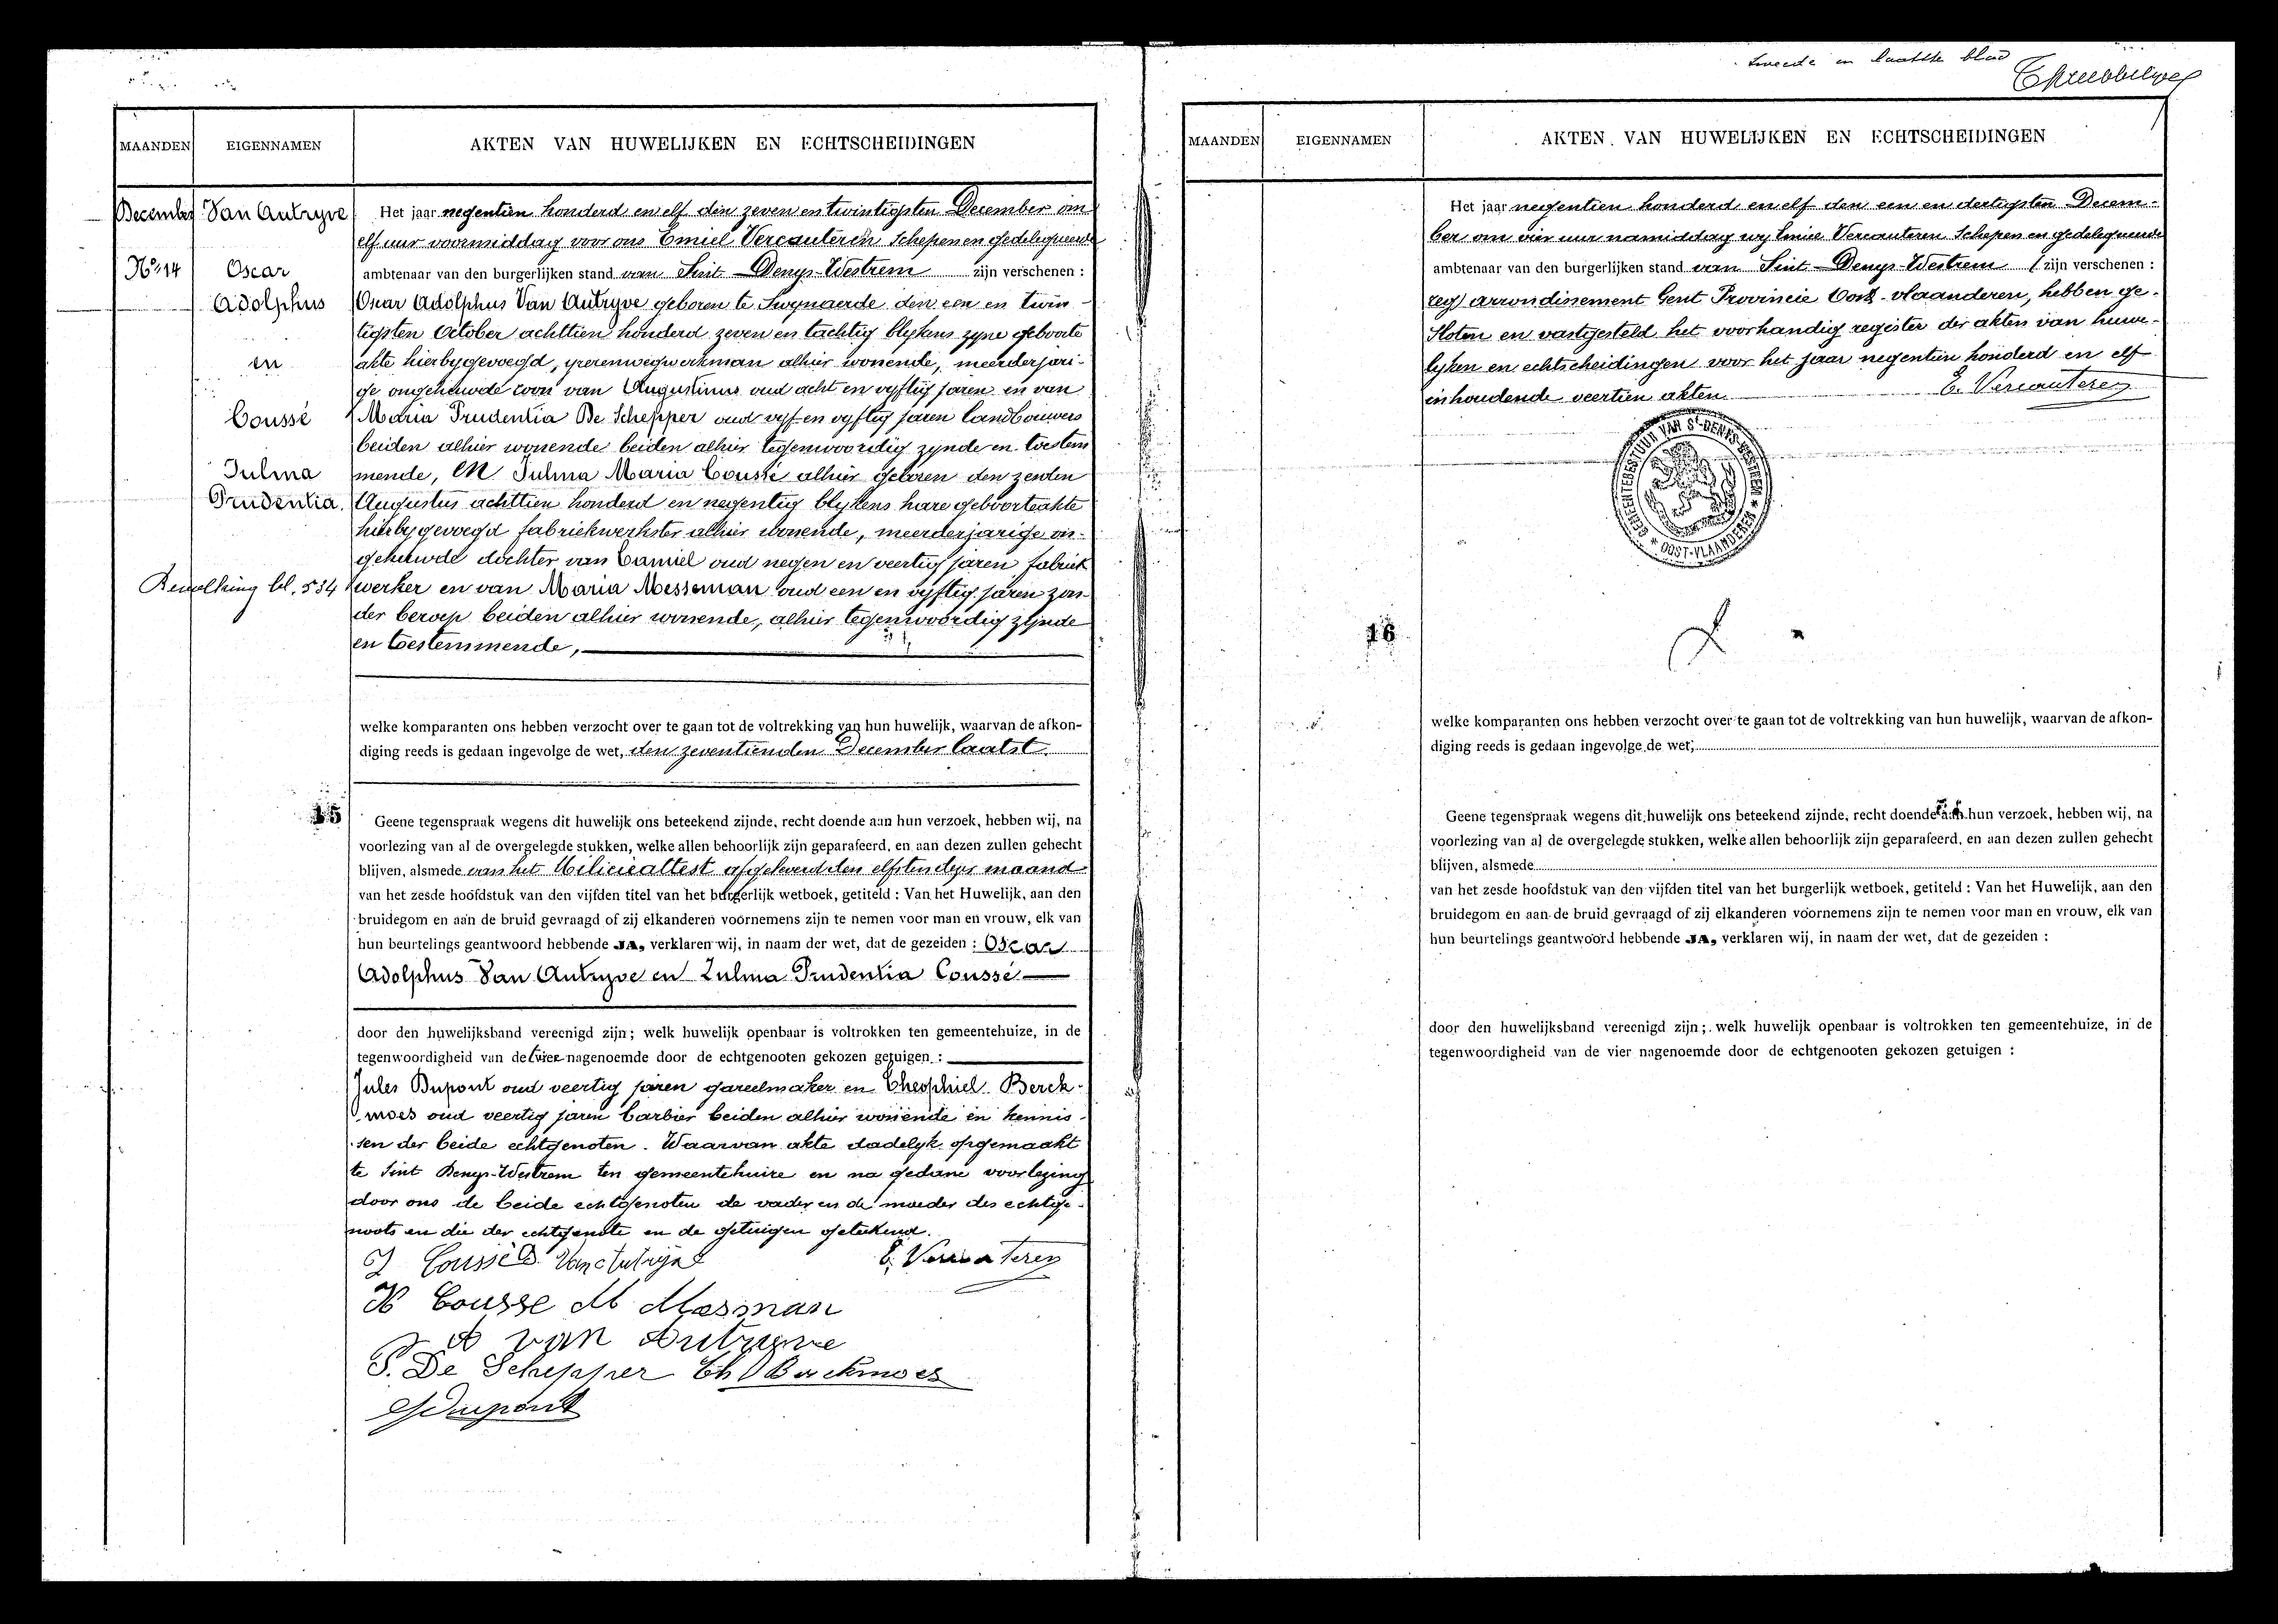 tweede en laatste blad
MAANDEN
EIGENNAMEN
AKTEN VAN HUWELIJKEN EN ECHTSCHEIDINGEN
December
Van Autryve
No 14
Oscar
Adolphus
en
Coussé
Zulma
Prudentia.
Bevolking bl. 534
Het jaar negentien honderd en elf den zeven en twintigsten December om
elf uur voormiddag voor ons Emiel Vercauteren Schepen en gedelegueerde
ambtenaar van den burgerlijken stand van Sint-Denys-Westrem zijn verschenen :
Oscar Adolphus Van Autryve geboren te Swynaerde den een en twin-
tigsten October achttien honderd zeven en tachtig blykens zyne geboorte
akte hierbygevoegd, yzerenwegwerkman alhier wonende, meerderjari-
ge ongehuwde zoon van Augustinus oud acht en vyftig jaren en van
Maria Prudentia De Schepper oud vyf en vyftig jaren landbouwers
beiden alhier wonende beiden alhier tegenwoordig zynde en toestem
mende, en Zulma Maria Coussé alhier geboren den zesden
Augustus achttien honderd en negentig blykens hare geboorteakte
hierbygevoegd fabriekwerkster alhier wonende, meerderjarige on-
gehuwde dochter van Camiel oud negen en veertig jaren fabriek
werker en van Maria Messeman oud een en vyftig jaren zon-
der beroep beiden alhier wonende, alhier tegenwoordig zynde
en toestemmende,
welke komparanten ons hebben verzocht over te gaan tot de voltrekking van hun huwelijk, waarvan de afkon-
diging reeds is gedaan ingevolge de wet, den zeventienden December laatst
15
Geene tegenspraak wegens dit huwelijk ons beteekend zijnde, recht doende aan hun verzoek, hebben wij, na
voorlezing van al de overgelegde stukken, welke allen behoorlijk zijn geparafeerd, en aan dezen zullen gehecht
blijven, alsmede van het Miliciealtest afgeleverd den elfsten dezer maand
van het zesde hoofdstuk van den vijfden titel van het burgerlijk wetboek, getiteld : Van het Huwelijk, aan den
bruidegom en aan de bruid gevraagd of zij elkanderen voornemens zijn te nemen voor man en vrouw, elk van
hun beurtelings geantwoord hebbende JA, verklaren wij, in naam der wet, dat de gezeiden : Oscar
Adolphus Van Autryve en Zulma Prudentia Coussé
door den huwelijksband vereenigd zijn ; welk huwelijk openbaar is voltrokken ten gemeentehuize, in de
tegenwoordigheid van de vier nagenoemde door de echtgenooten gekozen getuigen :
Jules Dupont oud veertig jaren gareelmaker en Theophiel Berck-
moes oud veertig jaren barbier beiden alhier wonende en kennis-
sen der beide echtgenoten. Waarvan akte dadelyk opgemaakt
te Sint Denys-Westrem ten gemeentehuize en na gedane voorlezing
door ons de beide echtgenoten de vader en de moeder des echtge-
noots en die der echtgenote en de getuigen geteekend.
Z Coussé O. Van Autryve
E. Vercauteren
K Cousse M Mesman
A van Autryve
P. De Schepper Th Berckmoes
J Dupont
MAANDEN
EIGENNAMEN
AKTEN VAN HUWELIJKEN EN ECHTSCHEIDINGEN
Het jaar negentien honderd en elf den een en dertigsten Decem-
ber om vier uur namiddag wy Emiel Vercauteren Schepen en gedelegueerde
ambtenaar van den burgerlijken stand van Sint-Denys-Westrem ( zijn verschenen :
reg) arrondissement Gent Provincie Oost-Vlaanderen, hebben ge-
sloten en vastgesteld het voorhandig register der akten van huwe-
lyken en echtscheidingen voor het jaar negentien honderd en elf
inhoudende veertien akten.
E. Vercauteren
GEMEENTEBESTUUR VAN ST-DENYS-WESTREM * OOST-VLAANDEREN *
16
welke komparanten ons hebben verzocht over te gaan tot de voltrekking van hun huwelijk, waarvan de afkon-
diging reeds is gedaan ingevolge de wet,
Geene tegenspraak wegens dit huwelijk ons beteekend zijnde, recht doende aan hun verzoek, hebben wij, na
voorlezing van al de overgelegde stukken, welke allen behoorlijk zijn geparafeerd, en aan dezen zullen gehecht
blijven, alsmede
van het zesde hoofdstuk van den vijfden titel van het burgerlijk wetboek, getiteld : Van het Huwelijk, aan den
bruidegom en aan de bruid gevraagd of zij elkanderen voornemens zijn te nemen voor man en vrouw, elk van
hun beurtelings geantwoord hebbende JA, verklaren wij, in naam der wet, dat de gezeiden :
door den huwelijksband vereenigd zijn ; welk huwelijk openbaar is voltrokken ten gemeentehuize, in de
tegenwoordigheid van de vier nagenoemde door de echtgenooten gekozen getuigen :